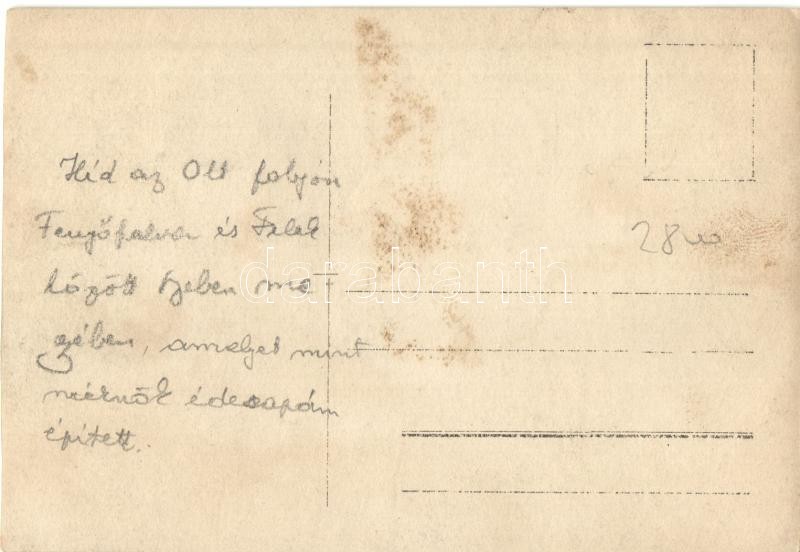 Híd az Olt folyón
Fenyőfalva és Felek
között Szeben me-
gyében, amelyet mint
mérnök édesapám
épített.
darabanth